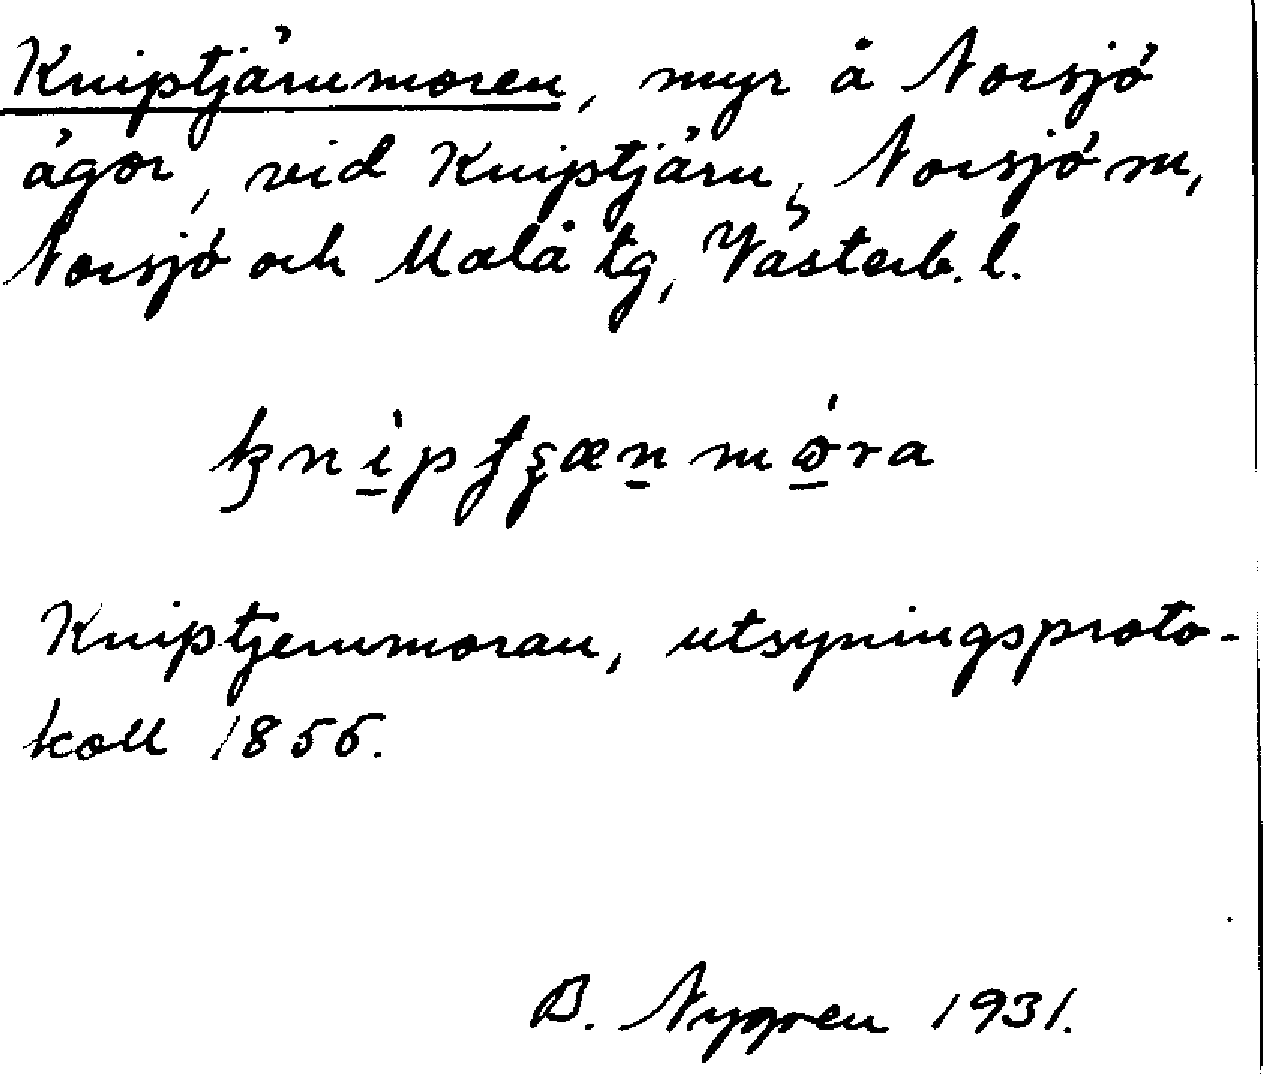 Kniptjärnmoren, myr å Norsjö
ägor, vid Kniptjärn, Norsjö sn,
Norsjö och Malå tg, Västerb. l.
Kniptjernmoran, utsyningsproto-
koll 1856.
B. Nygren 1931.